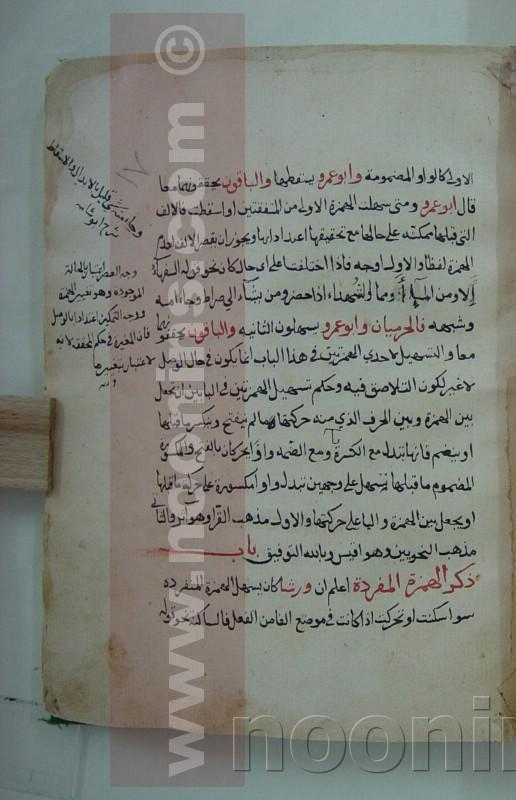 الاولى كالواو المضمومة وابو عمرو يسقطها والباقون يحققونهما معا
قال ابو عمرو ومتى سهلت الهمزة الاولى من المتفقتين او اسقطت فالالف
التي قبلها ممكنة على حالها مع تحقيقها اعتدادا بها ويجوز ان يقصر الالف لعدم
الهمزة لفظا والاول اوجه فاذا اختلفتا على اى حال كان نحو قوله السفهآ
الا ومن المآ او مما ولشهدآء اذا حضر ومن يشآء الى صراط وجآء امة
وشبهه فالحرميان وابو عمرو يسهلون الثانية والباقون يحققونهما
معا والتسهيل لاحدى الهمزتين في هذا الباب انما يكون في حال الوصل
لا غير لكون التلاصق فيه وحكم تسهيل الهمزتين في البابين ان تجعل
بين الهمزة وبين الحرف الذي منه حركتها ما لم تنفتح وينكسر ما قبلها
او ينضم فانها تبدل مع الكسرة يآ ومع الضمة واوا يحركان بالفتح والمكسورة
المضموم ما قبلها تسهل على وجهين تبدل واوا مكسورة على حركة ما قبلها
او يجعل بين الهمزة واليا على حركتها والاول مذهب القرآ وهو آثر والثاني
مذهب النحويين وهو اقيس وبالله التوفيق باب
ذكر الهمزة المفردة اعلم ان ورشا كان يسهل الهمزة المنفردة
سوا سكنت او تحركت اذا كانت في موضع الفا من الفعل فالساكنة نحو قوله
١٧
شرح ابو شامه
وجه القصر اعتبار بالحالة
الموجودة وهو تغيير الهمزة
ووجه التمكين اعتدادا بالاصل
فان المغيرة في حكم المحققة لانه
لا اعتبار بتغييرها
www.noorlinss.com ©
noorin